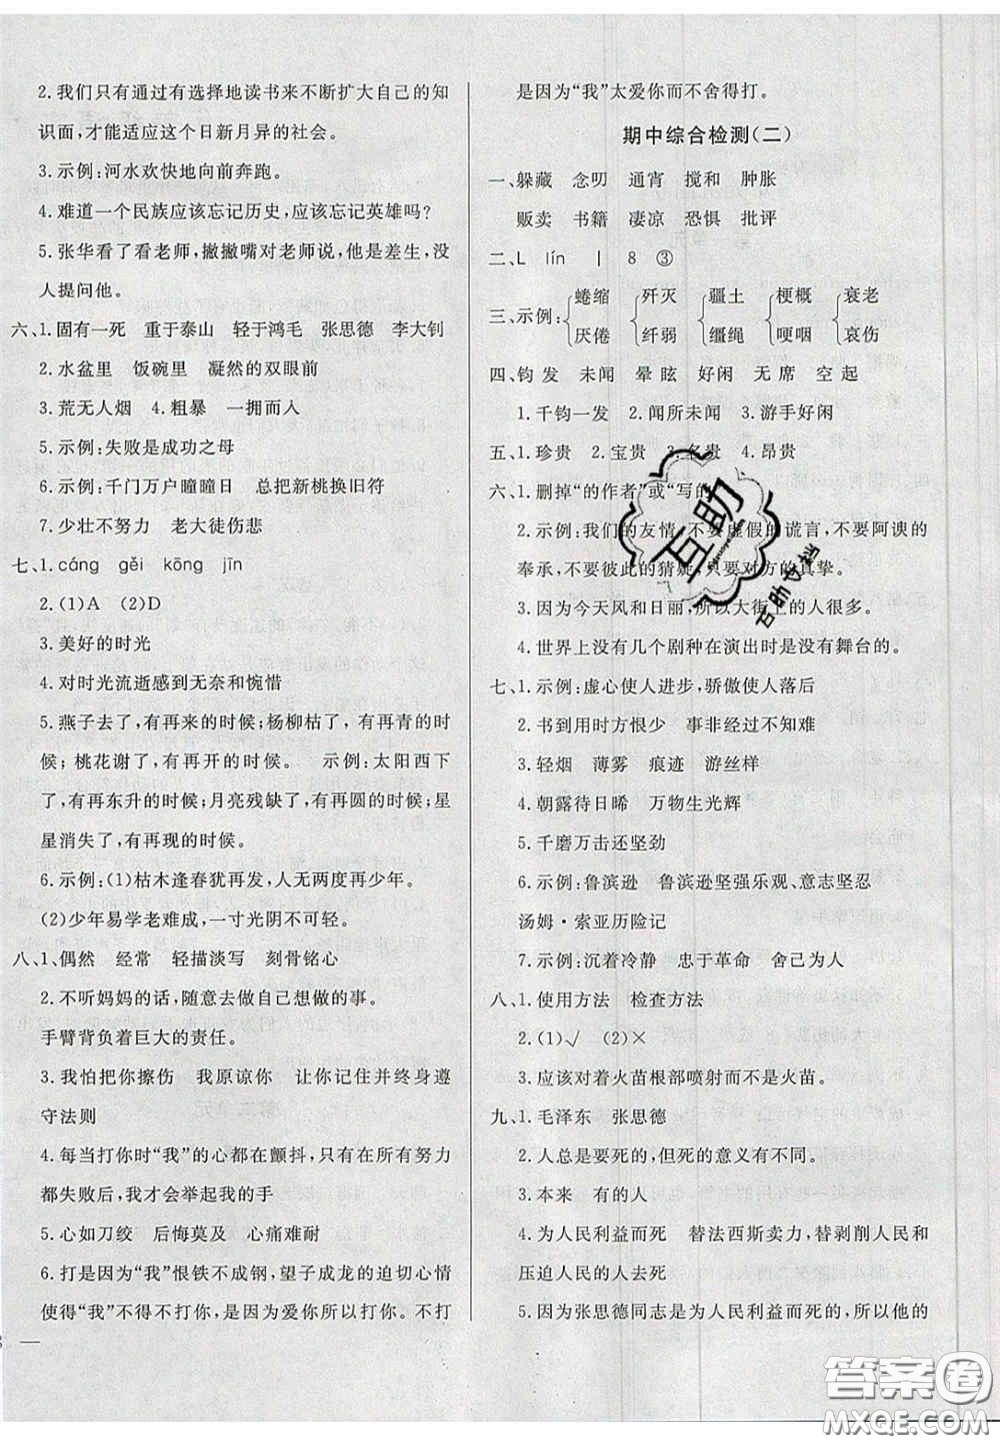 2. 我们只有通过有选择地读书来不断扩大自己的知
识面,才能适应这个日新月异的社会。
3. 示例:河水欢快地向前奔跑。
4. 难道一个民族应该忘记历史,应该忘记英雄吗?
5. 张华看了看老师,撇撇嘴对老师说,他是差生,没
人提问他。
六、1. 固有一死 重于泰山 轻于鸿毛 张思德 李大钊
2. 水盆里 饭碗里 凝然的双眼前
3. 荒无人烟 4. 粗暴 一拥而入
5. 示例:失败是成功之母
6. 示例:千门万户曈曈日 总把新桃换旧符
7. 少壮不努力 老大徒伤悲
七、1. cáng gěi kōng jīn
2. (1)A (2)D
3. 美好的时光
4. 对时光流逝感到无奈和惋惜
5. 燕子去了,有再来的时候;杨柳枯了,有再青的时
候;桃花谢了,有再开的时候。 示例:太阳西下
了,有再东升的时候;月亮残缺了,有再圆的时候;星
星消失了,有再现的时候。
6. 示例:(1)枯木逢春犹再发,人无两度再少年。
(2)少年易学老难成,一寸光阴不可轻。
八、1. 偶然 经常 轻描淡写 刻骨铭心
2. 不听妈妈的话,随意去做自己想做的事。
手臂背负着巨大的责任。
3. 我怕把你擦伤 我原谅你 让你记住并终身遵
守法则
4. 每当打你时“我”的心都在颤抖,只有在所有努力
都失败后,我才会举起我的手
5. 心如刀绞 后悔莫及 心痛难耐
6. 打是因为“我”恨铁不成钢,望子成龙的迫切心情
使得“我”不得不打你,是因为爱你所以打你。不打
是因为“我”太爱你而不舍得打。
期中综合检测(二)
一、躲藏 念叨 通宵 搅和 肿胀
贩卖 书籍 凄凉 恐惧 批评
二、L lín 丨 8 ③
三、示例: 蜷缩 歼灭 疆土 梗概 衰老
厌倦 纤弱 缰绳 哽咽 哀伤
四、钧 发 未闻 晕 眩 好闲 无 席 空 起
1. 千钧一发 2. 闻所未闻 3. 游手好闲
五、1. 珍贵 2. 宝贵 3. 名贵 4. 昂贵
六、1. 删掉“的作者”或“写的”
2. 示例:我们的友情,不要虚假的谎言,不要阿谀的
奉承,不要彼此的猜疑,只要对方的真挚。
3. 因为今天风和日丽,所以大街上的人很多。
4. 世界上没有几个剧种在演出时是没有舞台的。
七、1. 示例:虚心使人进步,骄傲使人落后
2. 书到用时方恨少 事非经过不知难
3. 轻烟 薄雾 痕迹 游丝样
4. 朝露待日晞 万物生光辉
5. 千磨万击还坚劲
6. 示例:鲁滨逊 鲁滨逊坚强乐观、意志坚忍
汤姆·索亚历险记
7. 示例:沉着冷静 忠于革命 舍己为人
八、1. 使用方法 检查方法
2. (1)√ (2)×
3. 应该对着火苗根部喷射而不是火苗。
九、1. 毛泽东 张思德
2. 人总是要死的,但死的意义有不同。
3. 本来 有的人
4. 为人民利益而死 替法西斯卖力,替剥削人民和
压迫人民的人去死
5. 因为张思德同志是为人民利益而死的,所以他的
互助
互助文档
答案圈
MXQE.COM